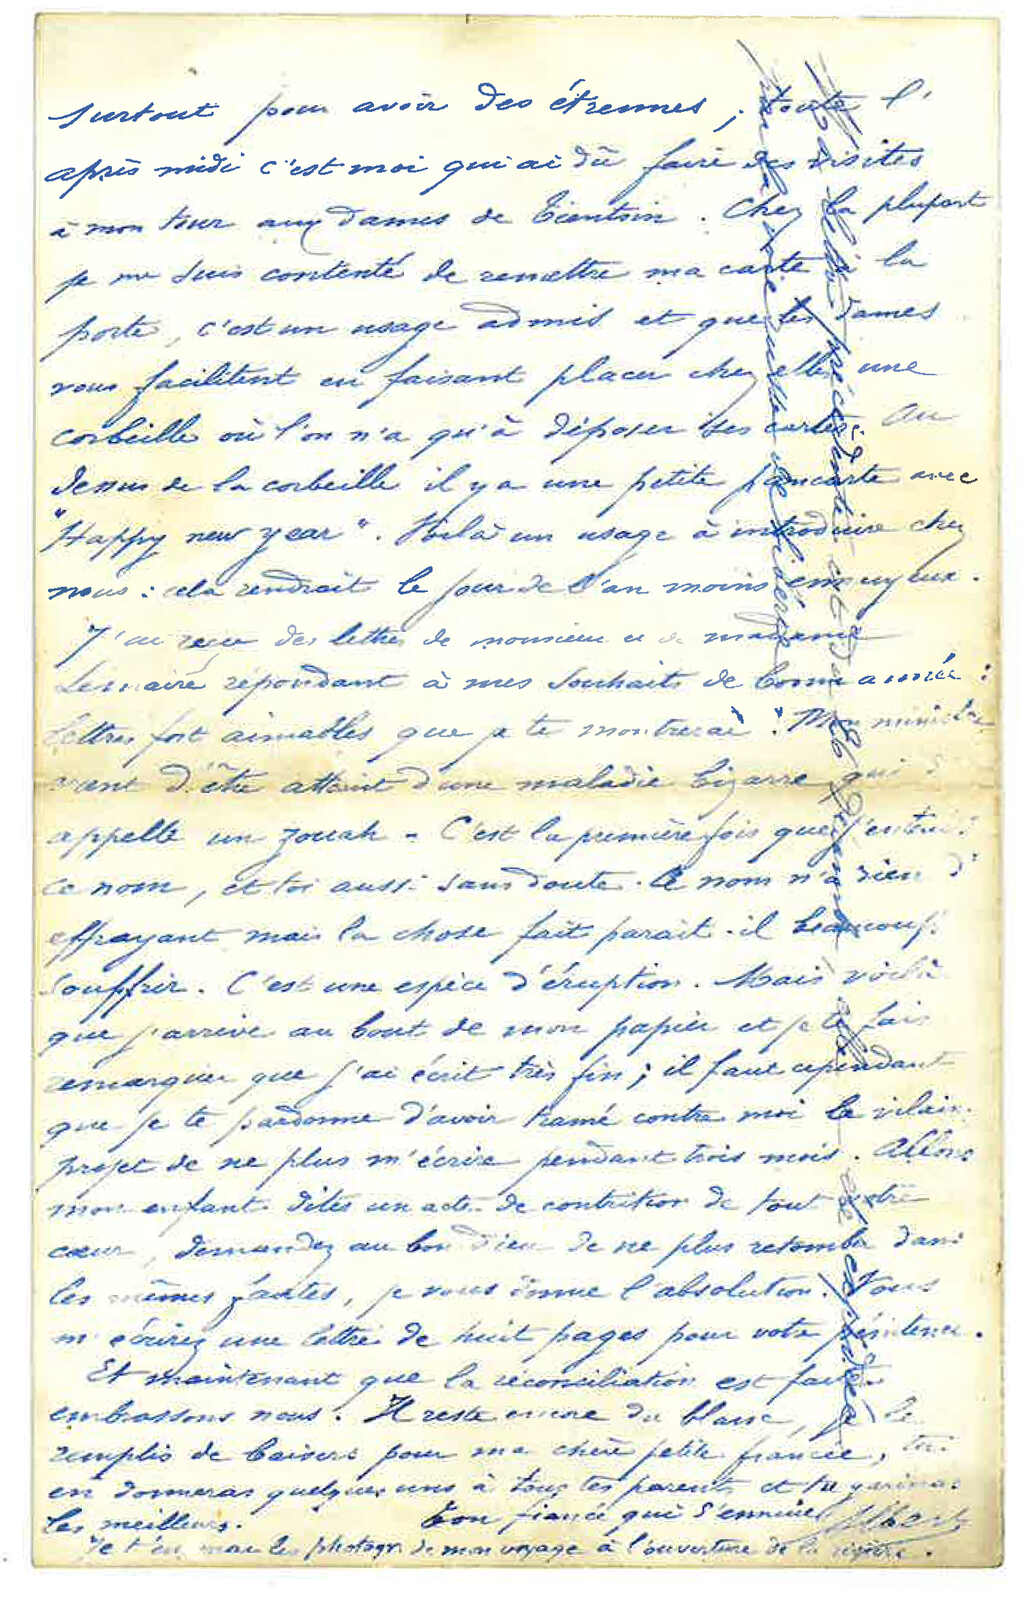 surtout pour avoir des étrennes, toute l'
après midi c'est moi qui ai dû faire des visites
à mon tour aux dames de Tientsin. Chez la plupart
je me suis contenté de remettre ma carte à la
porte, c'est un usage admis et que les dames
vous facilitent en faisant placer chez elles une
corbeille où l'on n'a qu'à déposer ses cartes. Au
dessus de la corbeille il y a une petite pancarte avec
"Happy new year". Voilà un usage à introduire chez
nous : cela rendrait le jour de l'an moins ennuyeux.
J'ai reçu des lettres de monsieur et de madame
Lemaire répondant à mes souhaits de bonne année :
lettres fort aimables que je te montrerai. Mon ministre
vient d'être atteint d'une maladie bizarre qui s'
appelle un zouah - C'est la première fois que j'entends
ce nom, et toi aussi sans doute. Ce nom n'a rien d'
effrayant mais la chose fait parait-il beaucoup
souffrir. C'est une espèce d'éruption. Mais voilà
que j'arrive au bout de mon papier et je te fais
remarquer que j'ai écrit très fin ; il faut cependant
que je te pardonne d'avoir tramé contre moi le vilain
projet de ne plus m'écrire pendant trois mois. Allons
mon enfant dites un acte de contrition de tout votre
cœur, demandez au bon Dieu de ne plus retomber dans
les mêmes fautes, je vous donne l'absolution. Vous
m'écrirez une lettre de huit pages pour votre pénitence.
Et maintenant que la réconciliation est faite
embrassons nous. Il reste encore du blanc, je le
remplis de baisers pour ma chère petite fiancée, toi
en donneras quelques uns à tous tes parents et tu garderas
les meilleurs. Ton fiancé qui s'ennuie Albert
Je t'en les photogr. de mon voyage à l'ouverture de la rivière.
précédente est